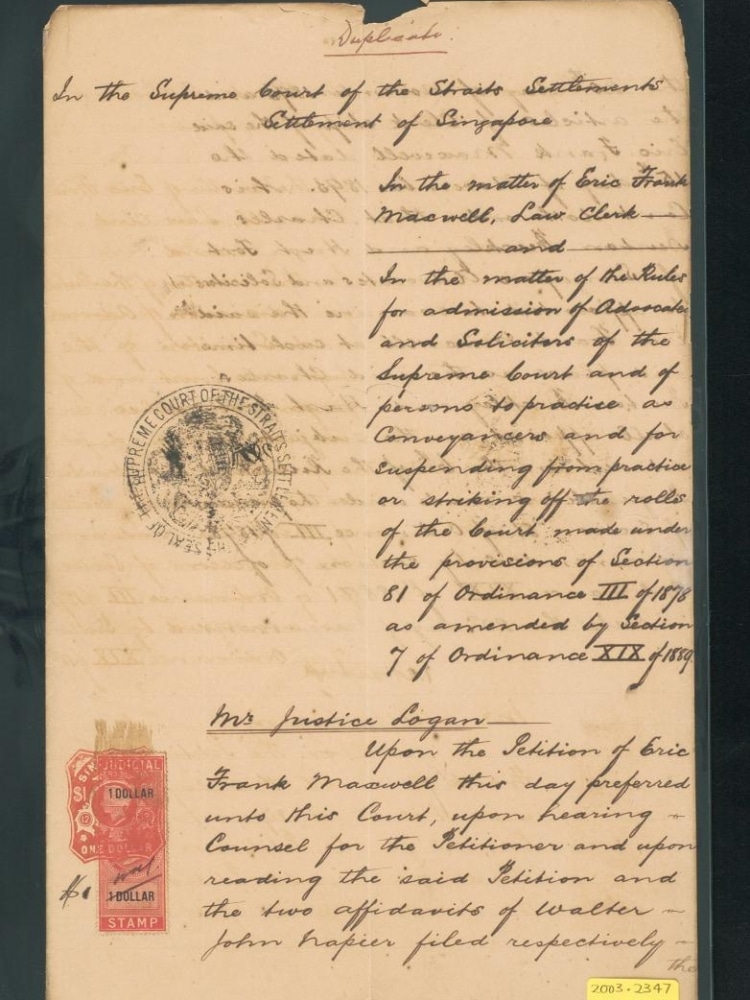 Duplicate.
In the Supreme Court of the Straits Settlements
Settlement of Singapore
In the matter of Eric Frank
Maxwell, Law Clerk
and
In the matter of the Rules
for admission of Advocates
and Solicitors of the
Supreme Court and of
persons to practise as
Conveyancers and for
suspending from practice
or striking off the rolls
of the Court made under
the provisions of Section
81 of Ordinance III of 1878
as amended by Section
7 of Ordinance XIX of 1889
SEAL OF THE SUPREME COURT OF THE STRAITS SETTLEMENTS
Mr Justice Logan
Upon the Petition of Eric
Frank Maxwell this day preferred
unto this Court, upon hearing
Counsel for the Petitioner and upon
reading the said Petition and
the two affidavits of Walter
John Napier filed respectively
the
JUDICIAL
$1
1 DOLLAR
ONE DOLLAR
$1
1 DOLLAR
STAMP
2003-2347